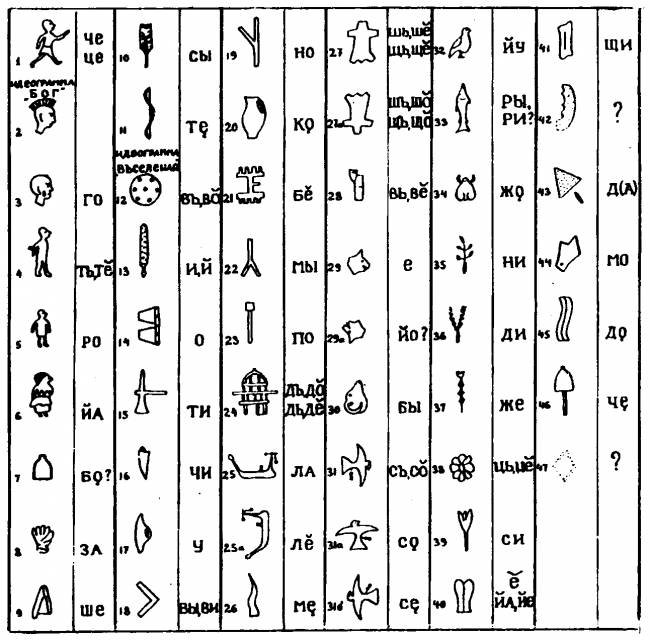 1 ЧЕ ЦЕ 10 СЫ 19 НО 27 ШЬ,ШӖ ЩЬ,ЩӖ 32 ЙУ 41 ЩИ
ИДЕОГРАММА "БОГ"
2 11 ТѢ 20 КО̨ 27а ШЪ,ШО̆ ЩЪ,ЩО̆ 33 РЫ, РИ? 42 ?
ИДЕОГРАММА ВЪСЕЛЕНАЙ
3 ГО 12 ВЪ,ВО̆ 21 БӖ 28 ВЬ,ВӖ 34 ЖО̨ 43 Д(А)
4 ТЬ,ТӖ 13 И,Й 22 МЫ 29 Е 35 НИ 44 МО
5 РО 14 О 23 ПО 29а ЙО? 36 ДИ 45 ДО̨
6 ЙА 15 ТИ 24 ДЪ,ДО̆ ДЬ,ДӖ 30 БЫ 37 ЖЕ 46 ЧЕ̨
7 БО̨? 16 ЧИ 25 ЛА 31 СЪ,СО̆ 38 ЦЬ,ЦӖ 47 ?
8 ЗА 17 У 25а ЛӖ 31а СО̨ 39 СИ
9 ШЕ 18 ВЫ,ВИ 26 МЕ̨ 31б СЕ̨ 40 Ӗ ЙА,ЙЕ